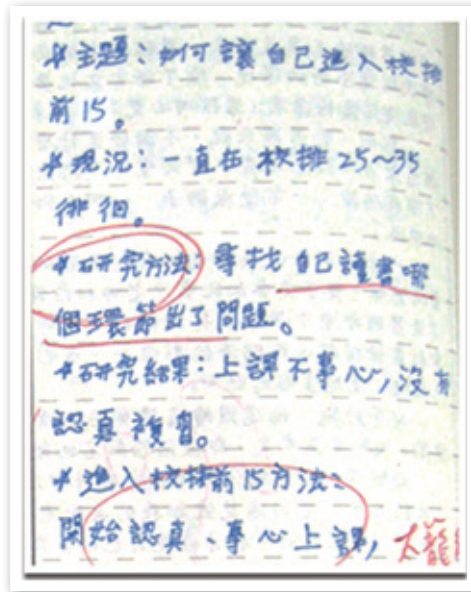 *主題：如何讓自己進入校排
前15。
*現況：一直在校排25~35
徘徊。
*研究方法：尋找自己讀書哪
個環節出了問題。
*研究結果：上課不專心，沒有
認真複習。
*進入校排前15方法：
開始認真、專心上課，太籠